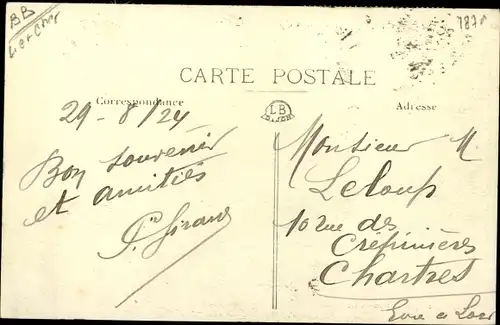 BB
CARTE POSTALE
Correspondance
LB
DIJON
Adresse
29-8/24
Bon souvenir
et amitiés
Monsieur M.
Leloup
10 rue des
Crépinières
Chartres
Eure et Loir